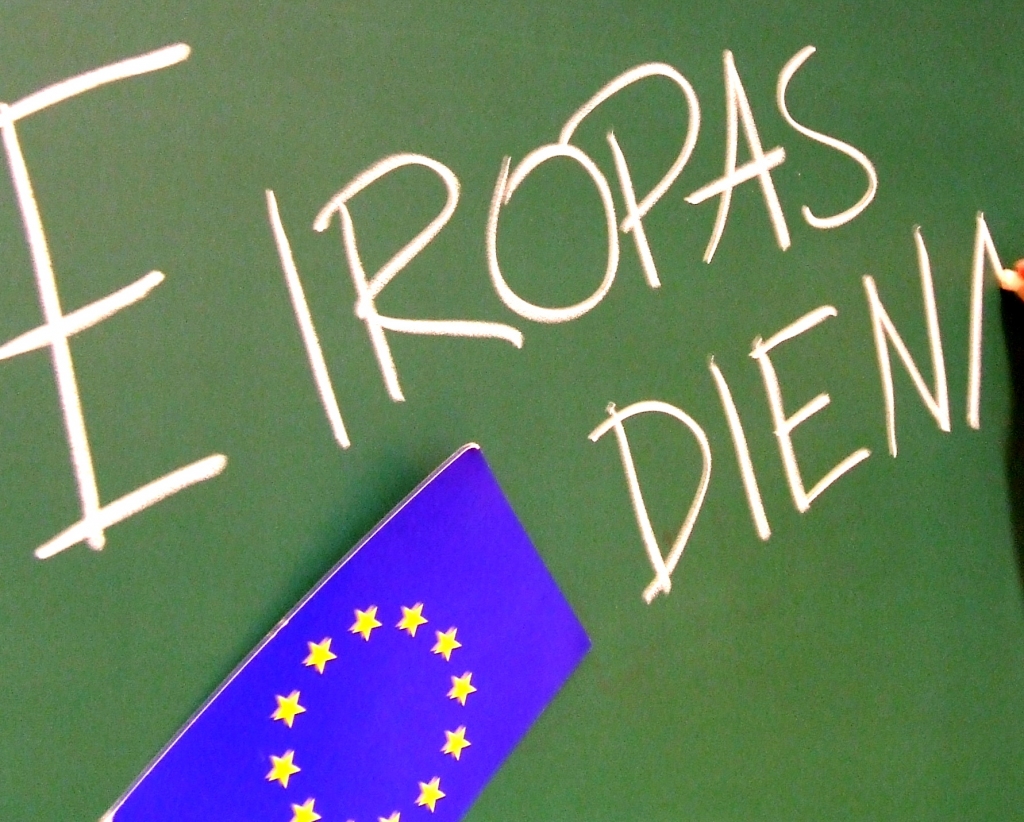 EIROPAS
DIENA